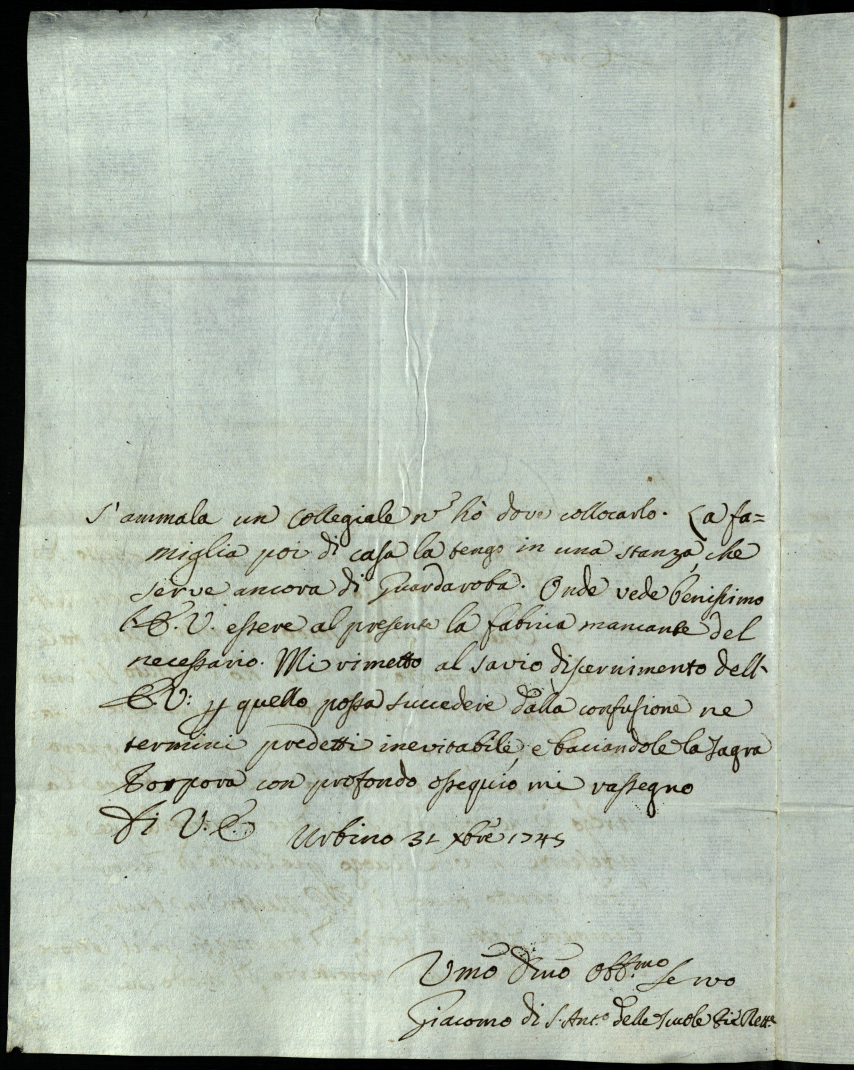 s'ammala un Collegiale nõ hò dove collocarlo. La fa=
miglia poi di casa la tengo in una stanza, che
serve ancora di Guardaroba. Onde vede benissimo
l'E. V. essere al presente la fabrica mancante del
necessario. Mi rimetto al savio discernimento dell'
E. V: p quello possa succedere dalla confusione ne
termini predetti inevitabile, e baciandole la Sagra
Porpora con profondo ossequio mi rassegno
Di V. E. Urbino 31 Xbre 1745
Umo Dmo Obbmo Servo
Giacomo di S. Anto delle Scuole Pie Rette